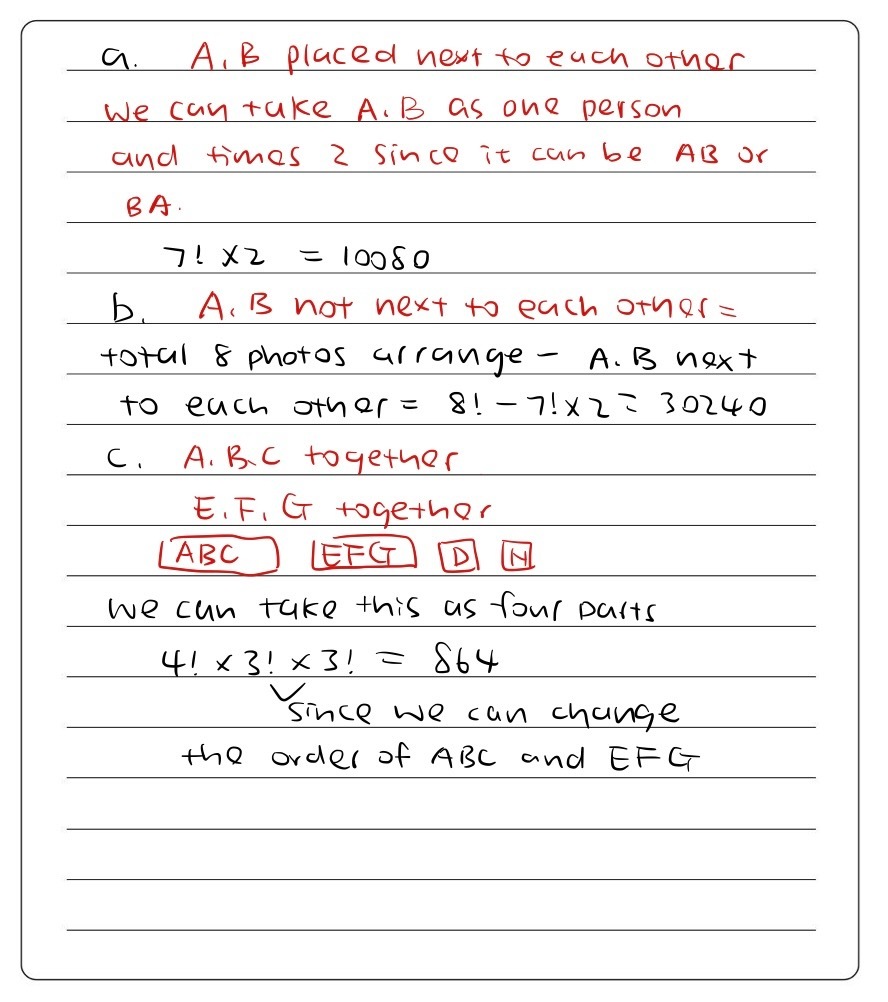 a. A, B placed next to each other
we can take A.B as one person
and times 2 since it can be AB or
BA.
7! × 2 = 10080
b. A, B not next to each other =
total 8 photos arrange - A.B next
to each other = 8! - 7! × 2 = 30240
c. A. B.C together
E.F, G together
ABC EFG D H
we can take this as four parts
4! × 3! × 3! = 864
since we can change
the order of ABC and EFG